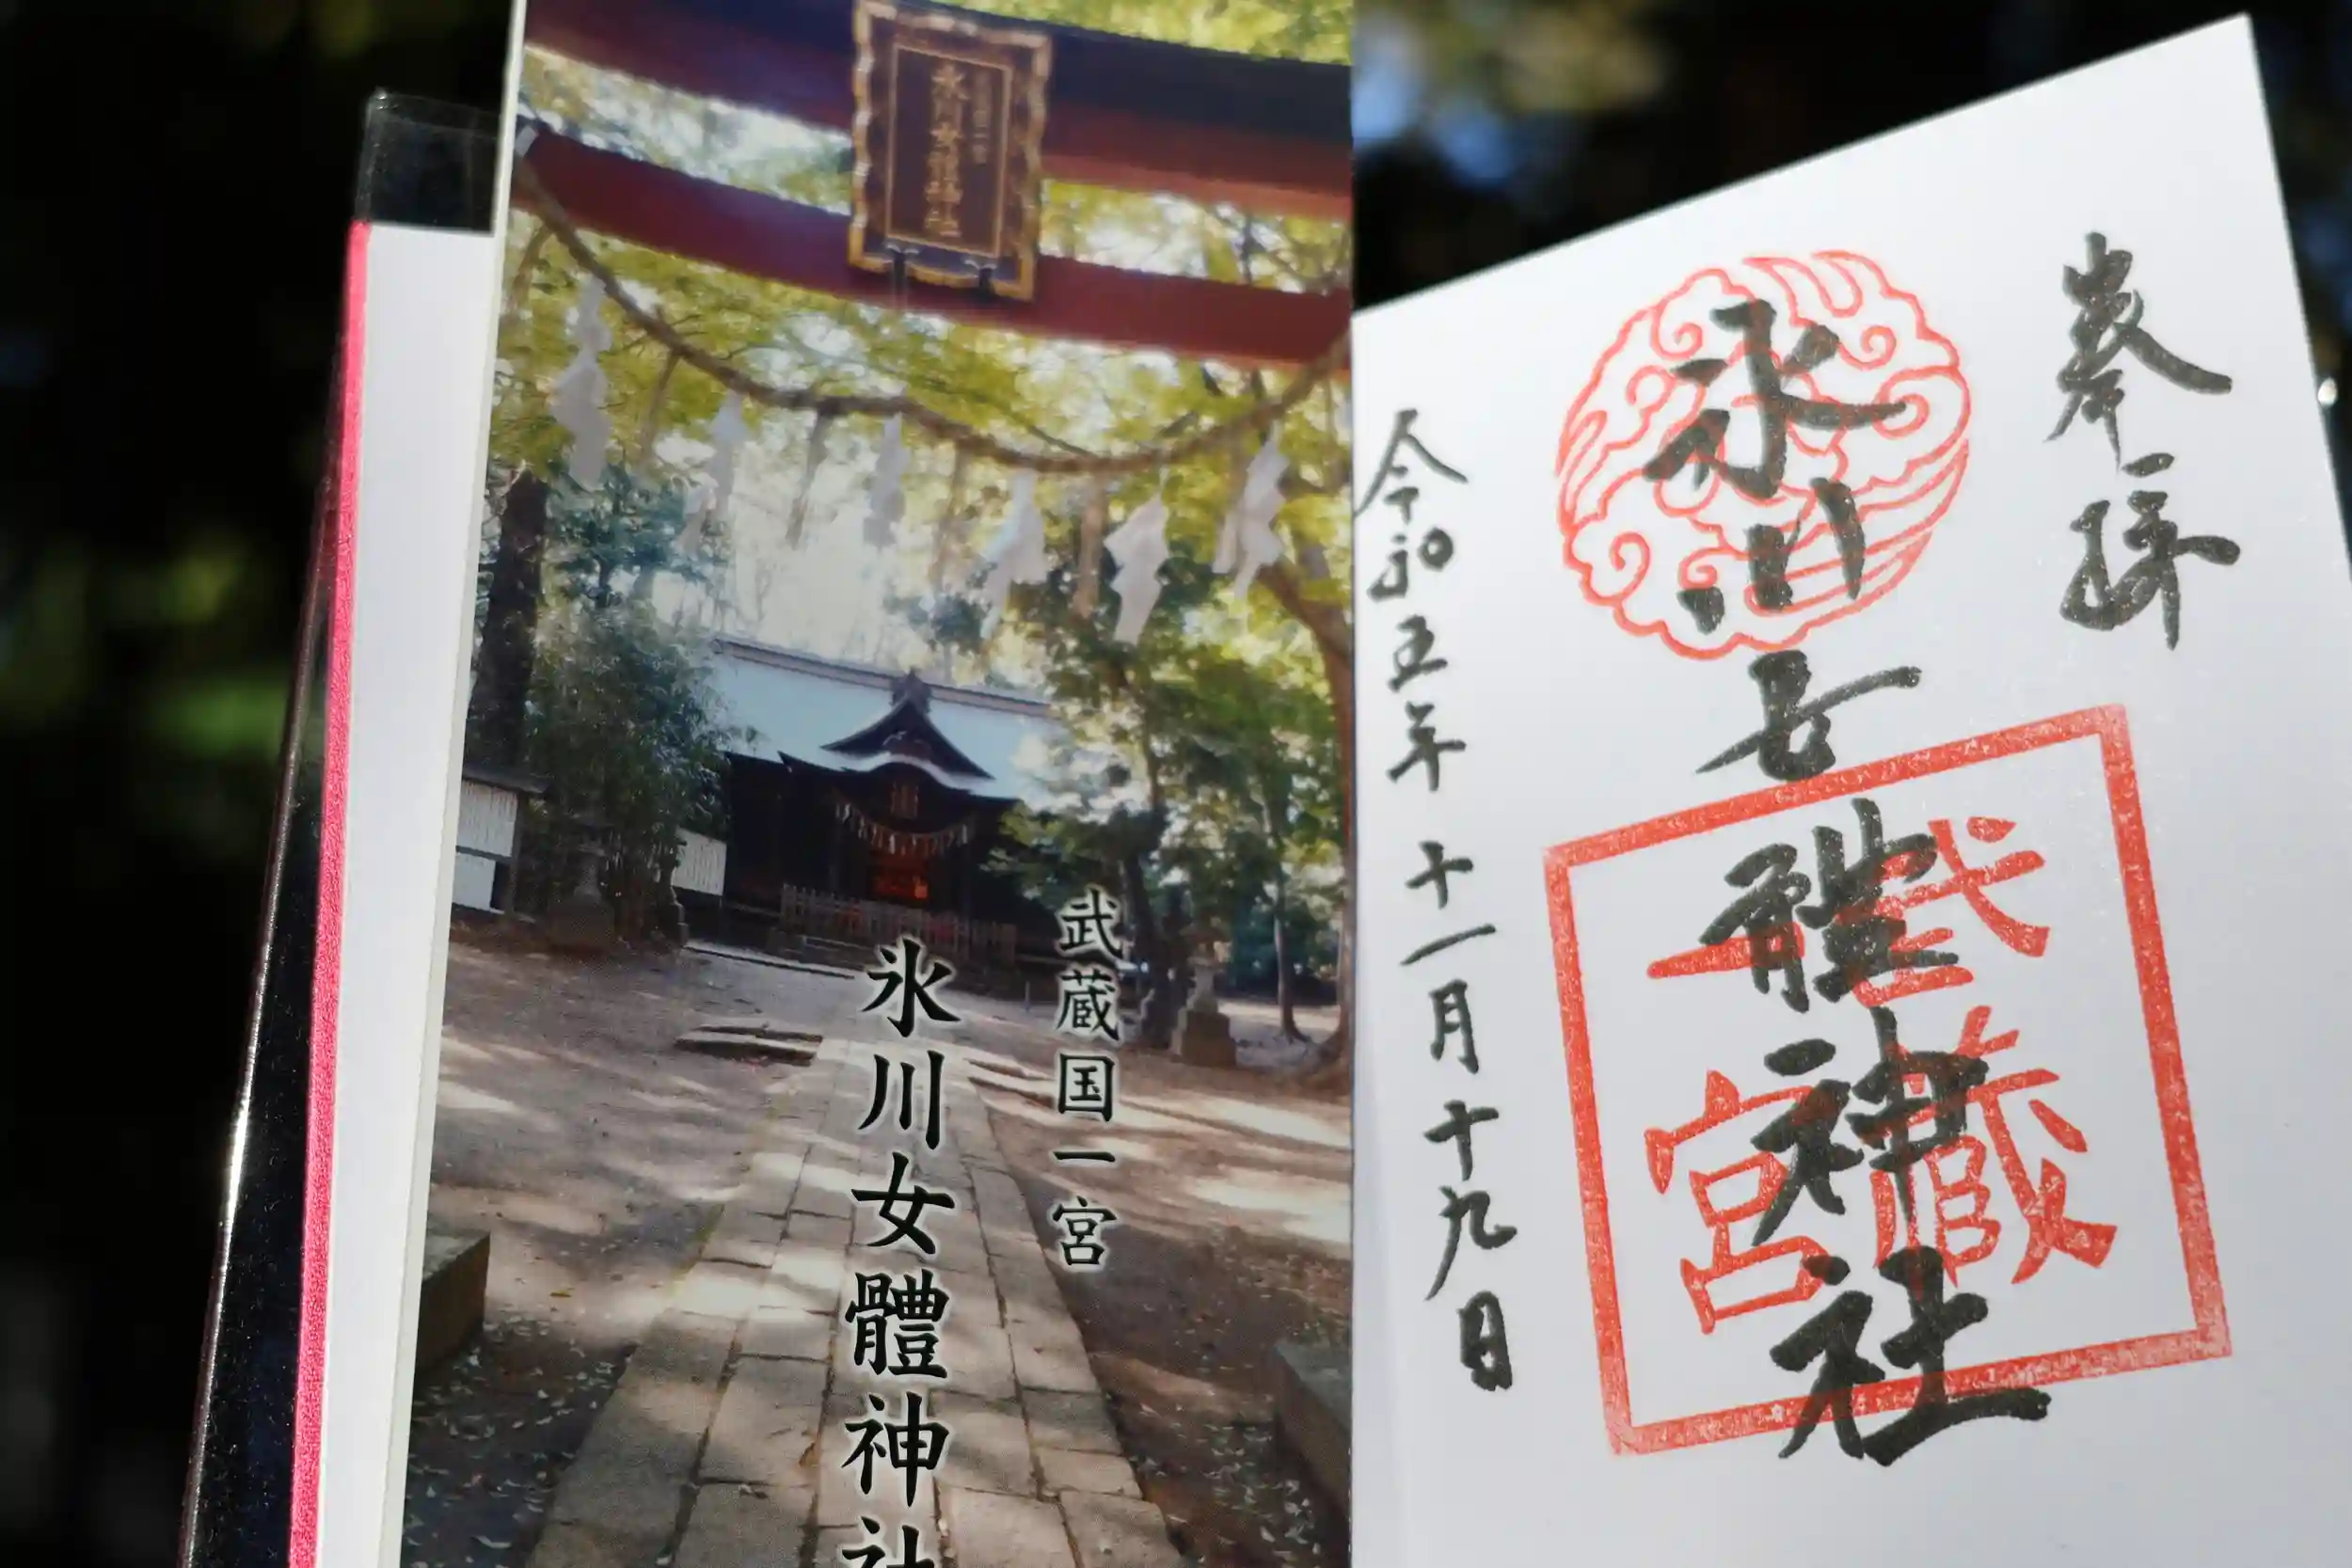 武蔵国一宮
氷川女體神社
武蔵国一宮
氷川女體神社
奉拝
氷川女體神社
武蔵宮
令和五年十一月十九日